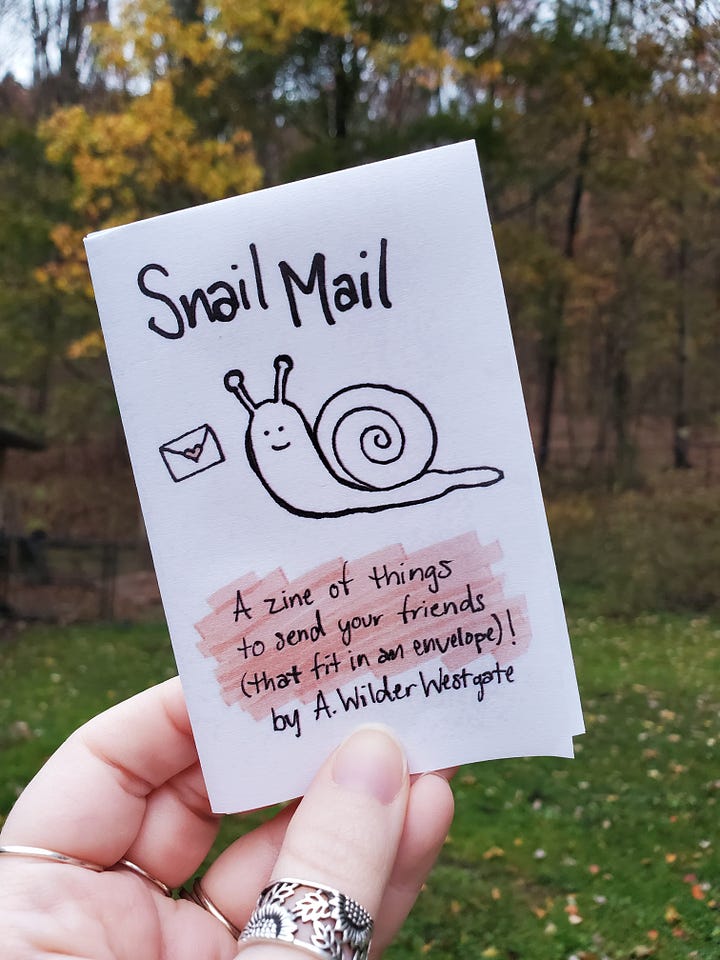 Snail Mail
A zine of things
to send your friends
(that fit in an envelope)!
by A. Wilder Westgate